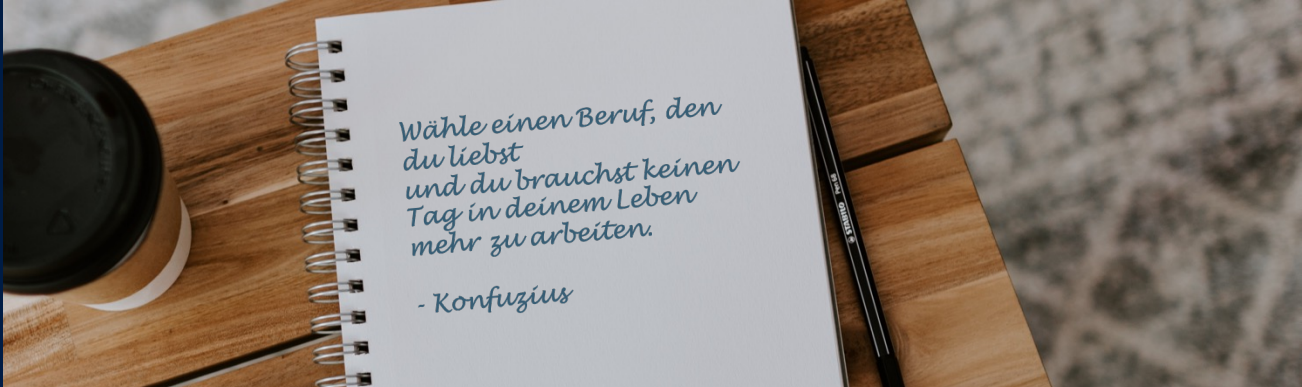 Wähle einen Beruf, den
du liebst
und du brauchst keinen
Tag in deinem Leben
mehr zu arbeiten.
- Konfuzius
STABILO Pen 68